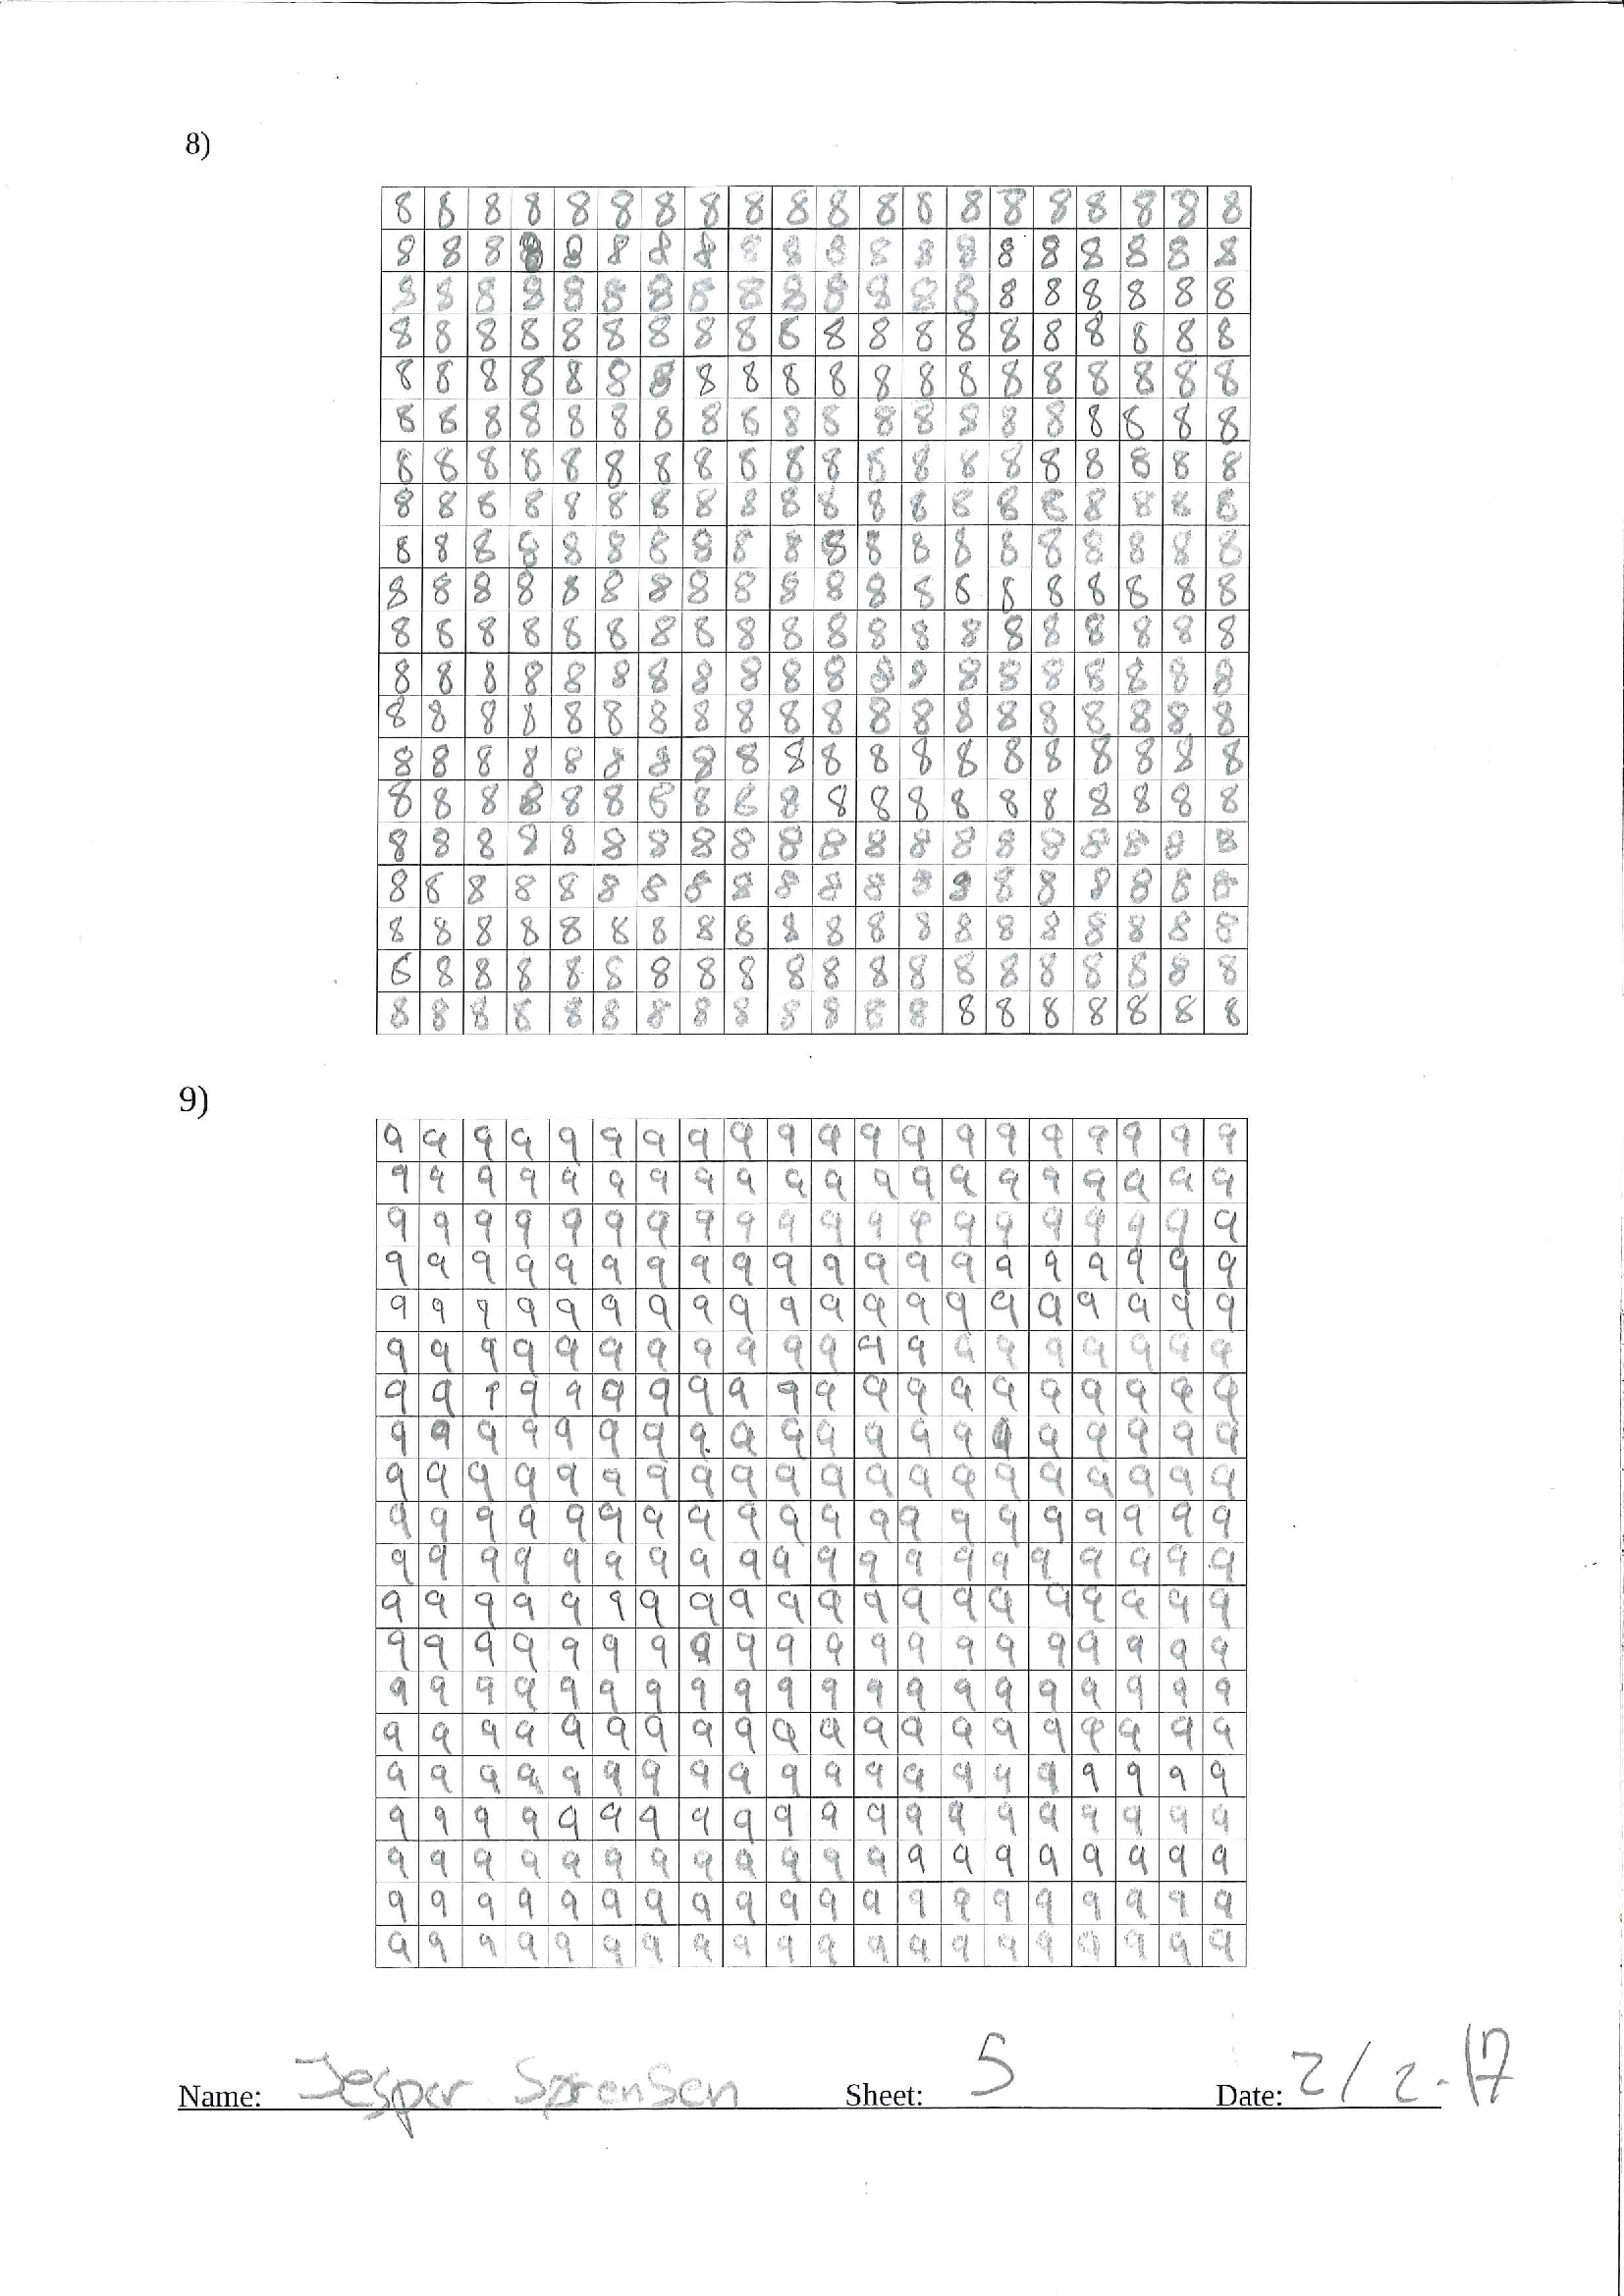 8)
8 8 8 8 8 8 8 8 8 8 8 8 8 8 8 8 8 8 8 8
8 8 8 8 8 8 8 8 8 8 8 8 8 8 8 8 8 8 8 8
8 8 8 8 8 8 8 8 8 8 8 8 8 8 8 8 8 8 8 8
8 8 8 8 8 8 8 8 8 8 8 8 8 8 8 8 8 8 8 8
8 8 8 8 8 8 8 8 8 8 8 8 8 8 8 8 8 8 8 8
8 8 8 8 8 8 8 8 8 8 8 8 8 8 8 8 8 8 8 8
8 8 8 8 8 8 8 8 8 8 8 8 8 8 8 8 8 8 8 8
8 8 8 8 8 8 8 8 8 8 8 8 8 8 8 8 8 8 8 8
8 8 8 8 8 8 8 8 8 8 8 8 8 8 8 8 8 8 8 8
8 8 8 8 8 8 8 8 8 8 8 8 8 8 8 8 8 8 8 8
8 8 8 8 8 8 8 8 8 8 8 8 8 8 8 8 8 8 8 8
8 8 8 8 8 8 8 8 8 8 8 8 8 8 8 8 8 8 8 8
8 8 8 8 8 8 8 8 8 8 8 8 8 8 8 8 8 8 8 8
8 8 8 8 8 8 8 8 8 8 8 8 8 8 8 8 8 8 8 8
8 8 8 8 8 8 8 8 8 8 8 8 8 8 8 8 8 8 8 8
8 8 8 8 8 8 8 8 8 8 8 8 8 8 8 8 8 8 8 8
8 8 8 8 8 8 8 8 8 8 8 8 8 8 8 8 8 8 8 8
8 8 8 8 8 8 8 8 8 8 8 8 8 8 8 8 8 8 8 8
8 8 8 8 8 8 8 8 8 8 8 8 8 8 8 8 8 8 8 8
8 8 8 8 8 8 8 8 8 8 8 8 8 8 8 8 8 8 8 8
9)
9 9 9 9 9 9 9 9 9 9 9 9 9 9 9 9 9 9 9 9
9 9 9 9 9 9 9 9 9 9 9 9 9 9 9 9 9 9 9 9
9 9 9 9 9 9 9 9 9 9 9 9 9 9 9 9 9 9 9 9
9 9 9 9 9 9 9 9 9 9 9 9 9 9 9 9 9 9 9 9
9 9 9 9 9 9 9 9 9 9 9 9 9 9 9 9 9 9 9 9
9 9 9 9 9 9 9 9 9 9 9 9 9 9 9 9 9 9 9 9
9 9 9 9 9 9 9 9 9 9 9 9 9 9 9 9 9 9 9 9
9 9 9 9 9 9 9 9 9 9 9 9 9 9 9 9 9 9 9 9
9 9 9 9 9 9 9 9 9 9 9 9 9 9 9 9 9 9 9 9
9 9 9 9 9 9 9 9 9 9 9 9 9 9 9 9 9 9 9 9
9 9 9 9 9 9 9 9 9 9 9 9 9 9 9 9 9 9 9 9
9 9 9 9 9 9 9 9 9 9 9 9 9 9 9 9 9 9 9 9
9 9 9 9 9 9 9 9 9 9 9 9 9 9 9 9 9 9 9 9
9 9 9 9 9 9 9 9 9 9 9 9 9 9 9 9 9 9 9 9
9 9 9 9 9 9 9 9 9 9 9 9 9 9 9 9 9 9 9 9
9 9 9 9 9 9 9 9 9 9 9 9 9 9 9 9 9 9 9 9
9 9 9 9 9 9 9 9 9 9 9 9 9 9 9 9 9 9 9 9
9 9 9 9 9 9 9 9 9 9 9 9 9 9 9 9 9 9 9 9
9 9 9 9 9 9 9 9 9 9 9 9 9 9 9 9 9 9 9 9
9 9 9 9 9 9 9 9 9 9 9 9 9 9 9 9 9 9 9 9
Name: Jesper Sørensen Sheet: 5 Date: 2/2-17